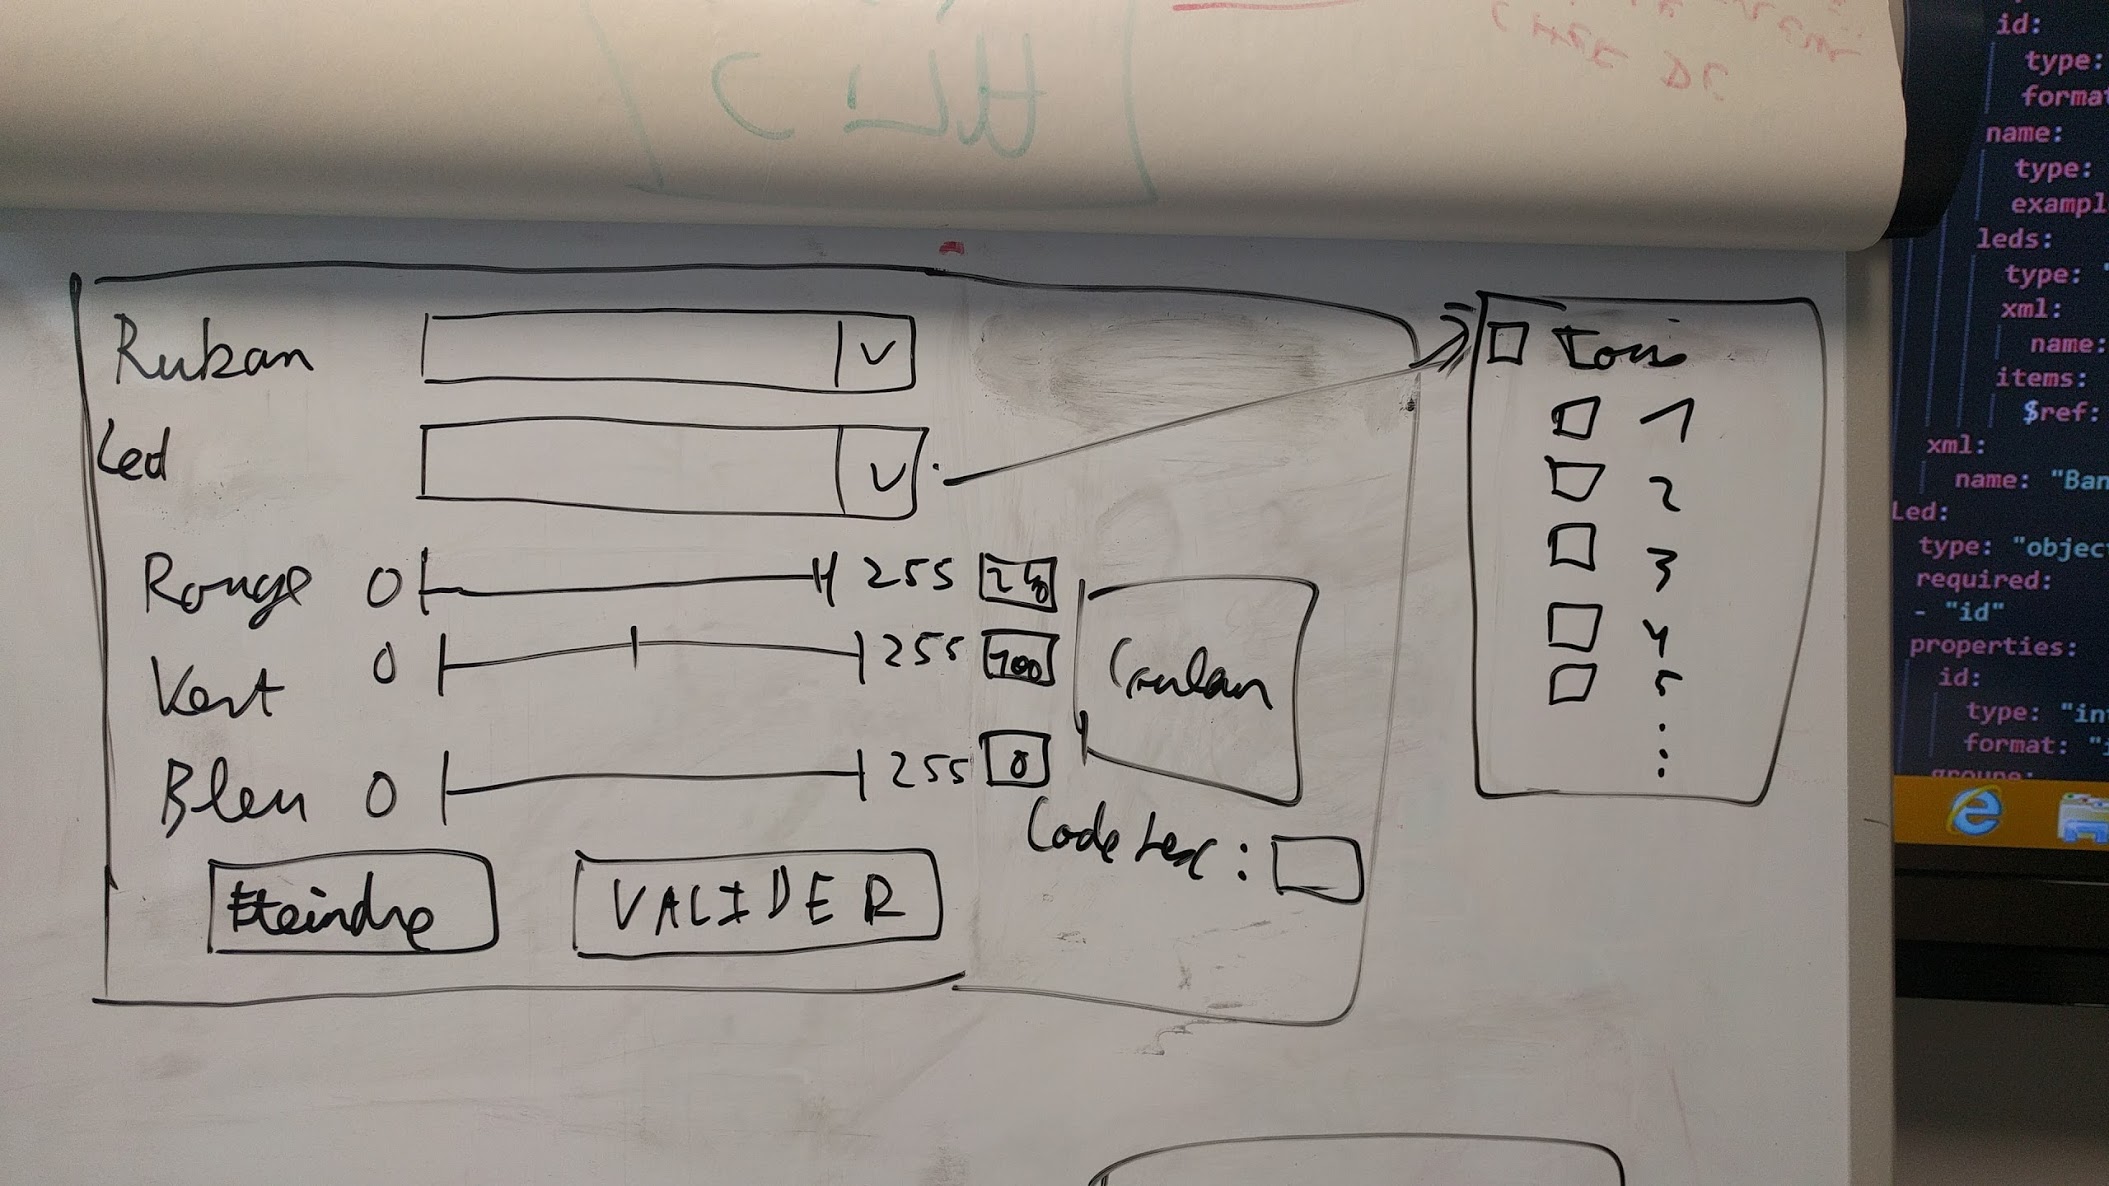 Ruban V
Led V
Rouge 0 255
Vert 0 255 100
Bleu 0 255 0
Couleur
Code hex :
Eteindre VALIDER
Tous
1
2
3
4
5
id:
type:
forma
name:
type:
exampl
leds:
type: "
xml:
name:
items:
$ref:
xml:
name: "Ban
Led:
type: "objec
required:
- "id"
properties:
id:
type: "in
format: "i
groupe: